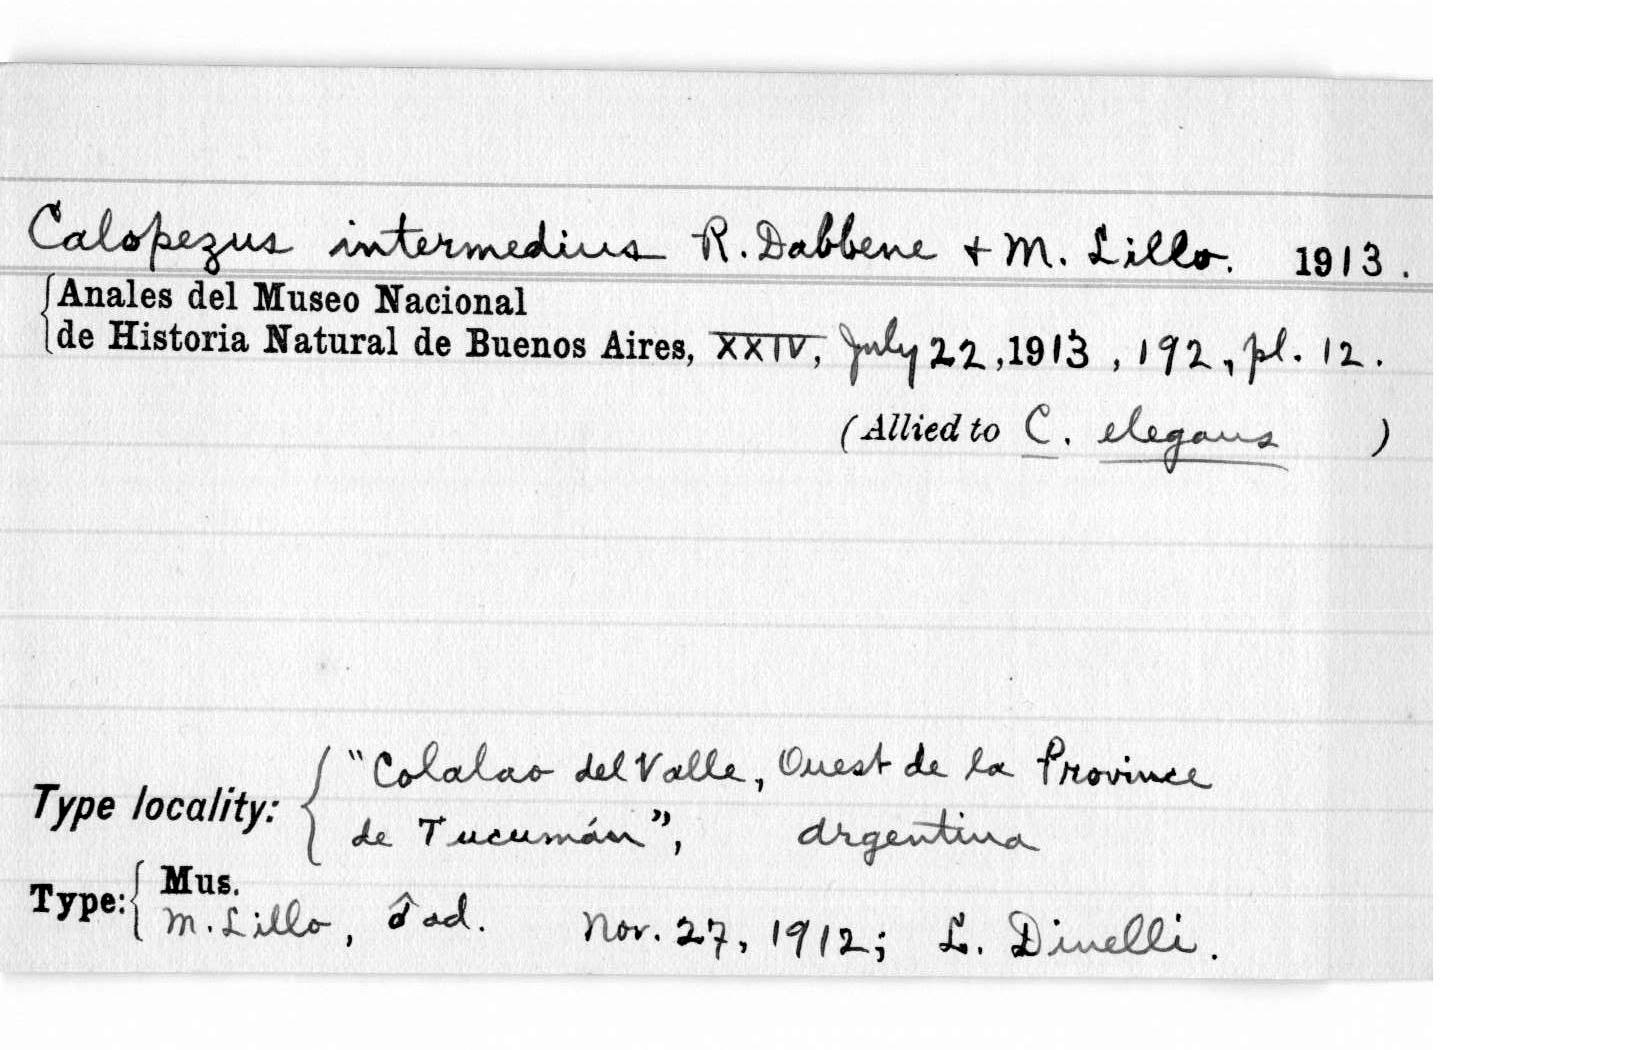 Calopezus intermedius R. Dabbene + M. Lillo. 1913.
Anales del Museo Nacional
de Historia Natural de Buenos Aires, XXIV, July 22, 1913, 192, pl. 12.
(Allied to C. elegans )
Type locality: "Colalao del Valle, Ouest de la Province
de Tucumán", Argentina
Type: Mus.
M. Lillo, ♂ ad. Nov. 27, 1912; L. Dinelli.